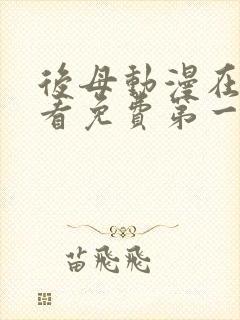 後母動漫在
看免費第一
苗飛飛